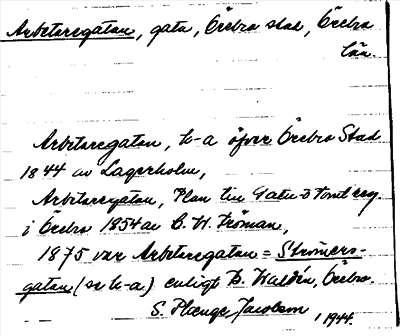 Arbetaregatan, gata, Örebro stad, Örebro
län.
Arbetaregatan, k-a öfver Örebro Stad
1844 av Lagerholm,
Arbetaregatan, Plan till Gatu- o Tomtreg.
i Örebro 1854 av C. W. Ströman,
1875 var Arbetaregatan = Strömers-
gatan (se k-a) enligt B. Waldén, Örebro.
S. Plænge Jacobson, 1944.